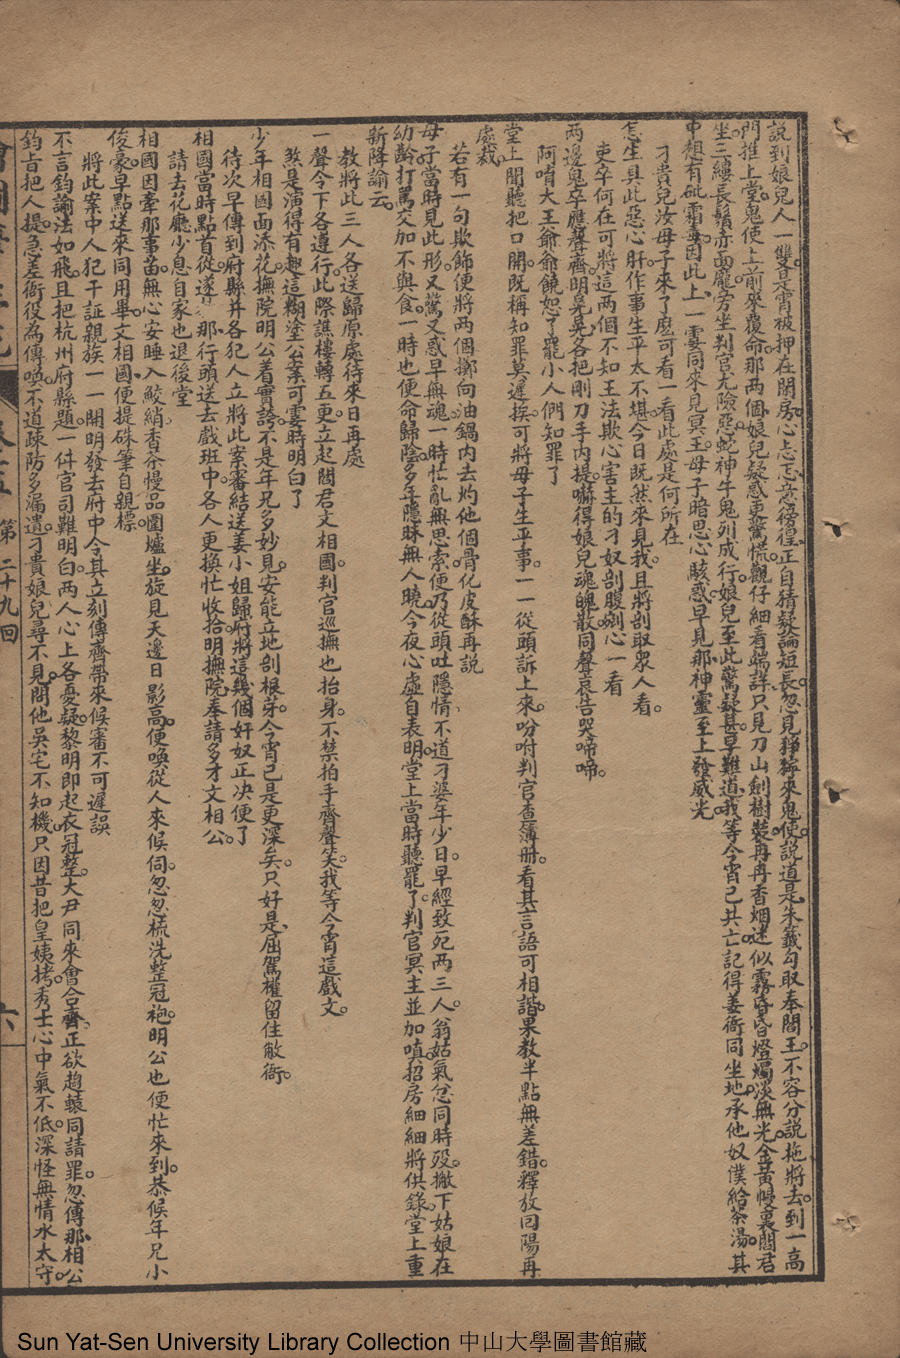 說到娘兒人一雙。是宵被押在閒房。心忐忑意徬徨。正自猜疑論短長。忽見猙獰來鬼使。說道是朱籤勾取奉閻王。不容分說拖將去。到一高
門推上堂。鬼使上前來覆命。那兩個娘兒疑惑更驚慌。觀仔細看端詳。只見刀山劍樹裝。再再香烟迷似霧。昏昏燈燭淡無光。金黃幔裏閻君
坐。三縷長鬚赤面龐。旁坐判官尤險惡。蛇神牛鬼列成行。娘兒至此驚疑甚。早難道我等今宵已共亡。記得姜衙同坐地。承他奴僕給茶湯。其
中想有砒霜毒。因此上一霎同來見冥王。母子暗思心駭惑。早見那神靈至上發威光。
刁貴兒汝母子來了麽可看一看此處是何所在
怎生具此惡心肝。作事生平太不堪。今日旣然來見我。且將剖取衆人看。
吏卒何在可將這兩個不知王法欺心害主的刁奴剖腹剜心一看
兩邊鬼卒應聲齊。明晃晃各把剛刀手內提。嚇得娘兒魂魄散。同聲哀告哭啼啼。
阿唷大王爺爺饒恕了罷小人們知罪了
堂上聞聽把口開。旣稱知罪莫遲挨。可將母子生平事。一一從頭訴上來。吩咐判官查簿册。看其言語可相諧。果敎半點無差錯。釋放回陽再
處裁。
若有一句欺飾便將兩個擲向油鍋內去灼他個骨化皮酥再説
母子當時見此形。又驚又惑早無魂。一時忙亂無思索。便乃從頭吐隱情。不道刁婆年少日。早經致死兩三人。翁姑氣忿同時歿。撇下姑娘在
幼齡。打罵交加不與食。一時也便命歸陰。多年隱昧無人曉。今夜心虛自表明。堂上當時聽罷了。判官冥主並加嗔。招房細細將供錄。堂上重
新降諭云。
敎將此三人各送歸原處待來日再處
一聲令下各遵行。此際譙樓轉五更。立起閻君文相國。判官巡撫也抬身。不禁拍手齊聲笑。我等今宵這戲文。
煞是演得有趣這糊塗公案可霎時明白了
少年相國面添花。撫院明公着實誇。不是年兄多妙見。安能立地剖根芽。今宵已是更深矣。只好是屈駕權留住敝衙。
待次早傳到府縣幷各犯人立將此案審結送姜小姐歸府將這幾個奸奴正決便了
相國當時點首從。遂將那行頭送去戲班中。各人更換忙收拾。明撫院奉請多才文相公。
請去花廳少息自家也退後堂
相國因牽那事苗。無心安睡入鮫綃。香茶慢品圍爐坐。旋見天邊日影高。便喚從人來候伺。忽忽梳洗整冠袍。明公也便忙來到。恭候年兄小
俊豪。早點送來同用畢。文相國便提硃筆自親標。
將此案中人犯干証親族一一開明發去府中令其立刻傳齊帶來候審不可遲誤
不言鈞諭法如飛。且把杭州府縣題。一件官司難明白。兩人心上各憂疑。黎明即起衣冠整。大尹同來會合齊。正欲趨轅同請罪。忽傳那相公
鈞旨把人提。急差衙役為傳喚。不道疎防多漏遺。刁貴娘兒尋不見。問他吳宅不知機。只因昔把皇姨拷。秀士心中氣不低。深怪無情水太守。
第二十九回
六
Sun Yat-Sen University Library Collection 中山大學圖書館藏